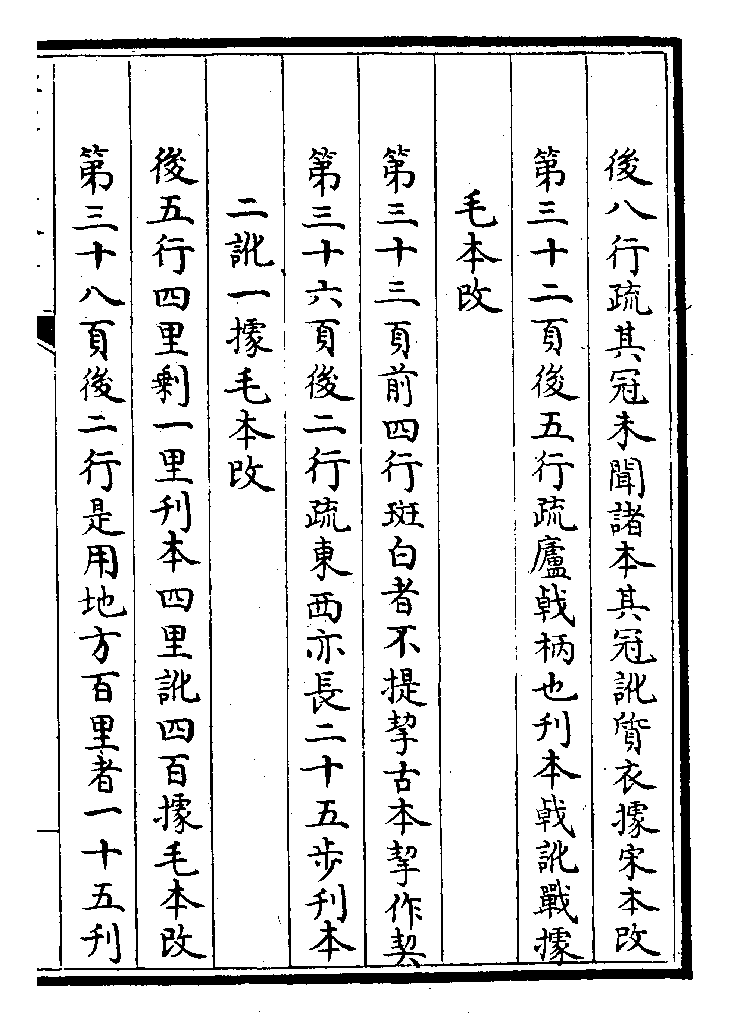 後八行疏其冠未聞諸本其冠訛質衣據宋本改
第三十二頁後五行疏廬戟柄也刋本戟訛戰據
毛本改
第三十三頁前四行斑白者不提挈古本挈作契
第三十六頁後二行疏東西亦長二十五步刋本
二訛一據毛本改
後五行四里剩一里刋本四里訛四百據毛本改
第三十八頁後二行是用地方百里者一十五刋